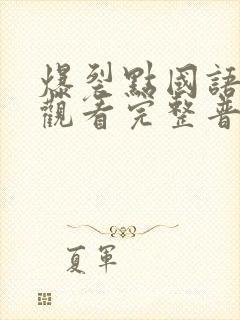 爆裂點國語
觀看完整普
夏軍